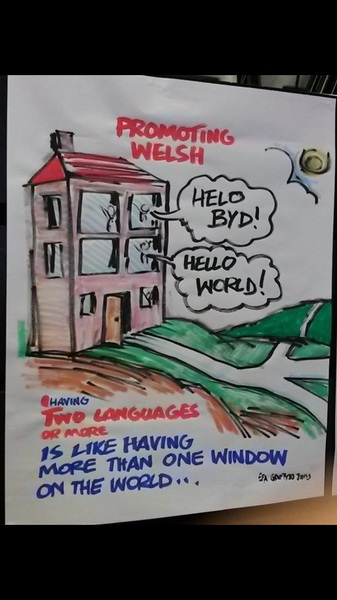 PROMOTING
WELSH
HELO
BYD!
HELLO
WORLD!
HAVING
TWO LANGUAGES
OR MORE
IS LIKE HAVING
MORE THAN ONE WINDOW
ON THE WORLD...